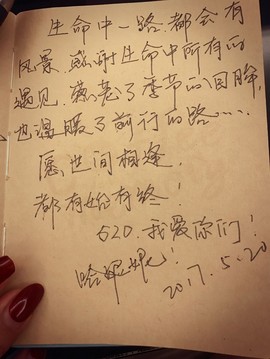 生命中一路都会有
风景.感谢生命中所有的
遇见.惹老了季节的目眸,
也温暖了前行的路……
愿世间相逢,
都有始有终!
520.我爱你们!
哈妮妮!
2017.5.20